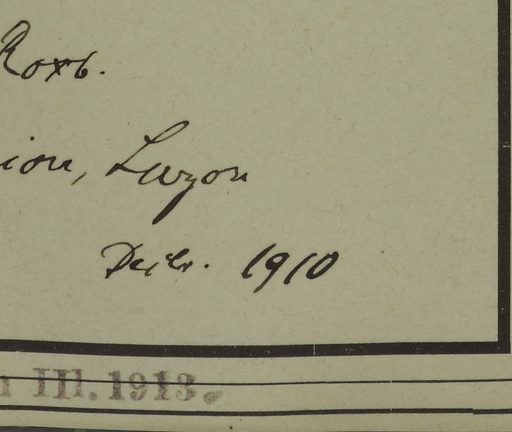 Roxb.
ion, Luzon
Decbr. 1910
III. 1913.